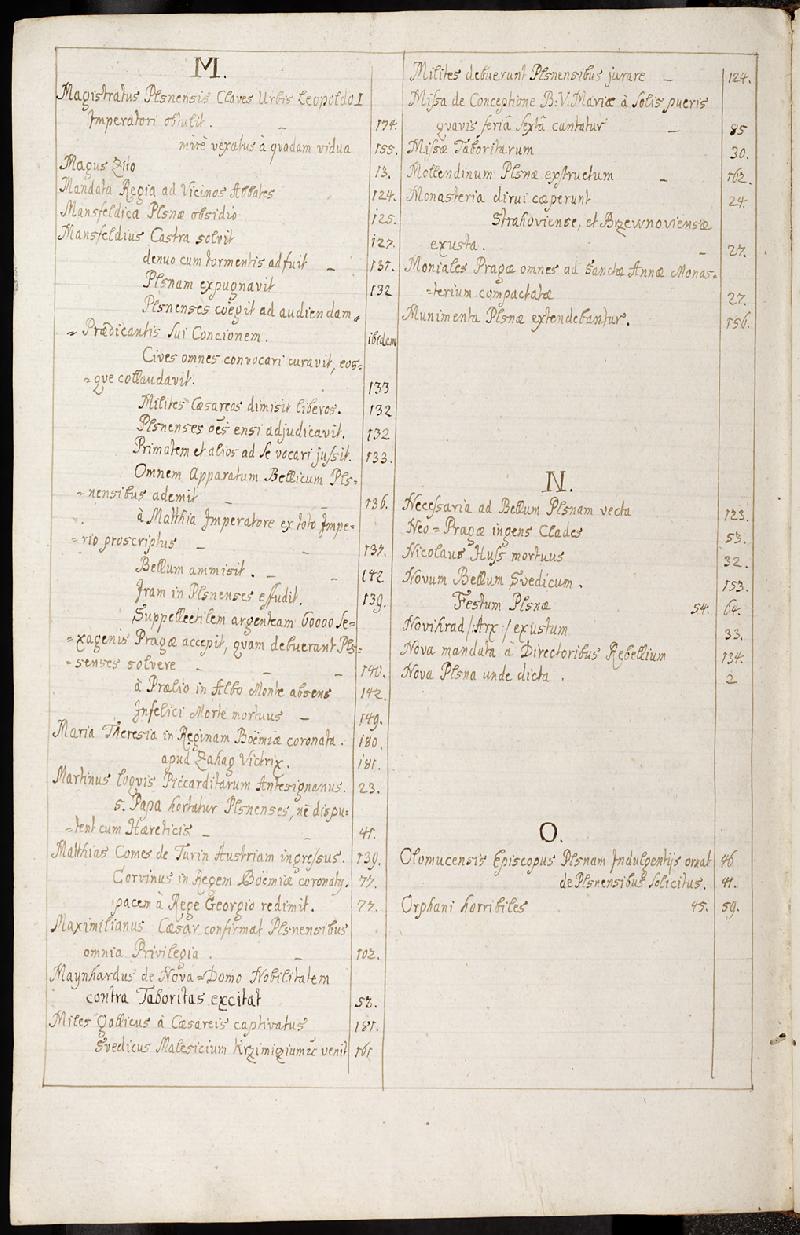 M.
Magistratus Plsnensis Claves Urbis Leopoldo I
Imperatori obtulit. 174.
mire vexatus à quodam vidua 155.
Magus Zito 13.
Mandata Regia ad Vicinos Abbates 124.
Mansfeldica Plsnæ obsidio 125.
Mansfeldius Castra solvit 127.
denuo cum tormentis adfuit 131.
Plsnam expugnavit 132
Plsnenses coëgit ad audiendam
Prædicantis sui Concionem. ibidem
Cives omnes convocari curavit, eos-
-que collaudavit. 133
Milites Cæsareos dimisit liberos. 132
Plsnenses oes ensi adjudicavit. 132
Primatem et alios ad se vocari jussit. 133.
Omnem Apparatum Bellicum Pls-
-nensibus ademit 136.
à Matthia Imperatore ex toto Impe-
-rio proscriptus 137.
Bellum ammisit. 142
Iram in Plsnenses effudit. 139.
Suppellectilem argenteam 60000 se-
-xagenis Pragæ accepit, quam debuerant Pls-
-senses solvere 140.
à Prælio in Albo Monte absens 142
Infelici Morte mortuus 149.
Maria Theresia in Reginam Boëmiæ coronata. 180.
apud Zahag Victrix. 181.
Martinus loqvis Piccarditarum Antesignanus. 23.
5. Papa hortatur Plsnenses, nè dispu-
-tent cum Hæreticis 41.
Matthias Comes de Turin Austriam ingressus. 139.
Corvinus in Regem Boëmiæ coronatg. 77.
pacem à Rege Georgio redimit. 77.
Maximilianus Cæsar confirmat Plsnensibus
omnia Privilegia. 102.
Maynhardus de Nova=Domo Nobilitatem
contra Taboritas excitat 53.
Miles Gallicus à Cæsareis captivatus 181.
Svedicus Malesicium Krzimiziumqz venit 161.
Milites debuerunt Plsnensibus jurare 124.
Missa de Conceptione B: V. Mariæ à Solis pueris
quavis feria sexta cantatur 85
Missæ Taboritarum 30.
Mollendinum Plsnæ exstructum 162.
Monasteria dirui cæperunt 24.
Strahoviense, et Brzewnoviense
exusta. 27.
Moniales Pragæ omnes ad Sanctæ Annæ Monas-
-terium compactatæ 27.
Munimenta Plsnæ extendebantur. 156.
N.
Necessaria ad Bellum Plsnam vecta 123.
Neo=Pragæ ingens Clades 53.
Nicolaus Huss mortuus 32.
Novum Bellum Svedicum. 153.
Festum Plsnæ 54. 64.
Novihrad /: Arx :/ exustum 33.
Nova mandata à Directoribus Rebellium 134.
Nova Plsna unde dicta. 2
O.
Olomucensis Episcopus Plsnam Indulgentijs ornat 46.
de Plsnensibus Solicitus. 41.
Orphani horribiles 45. 59.